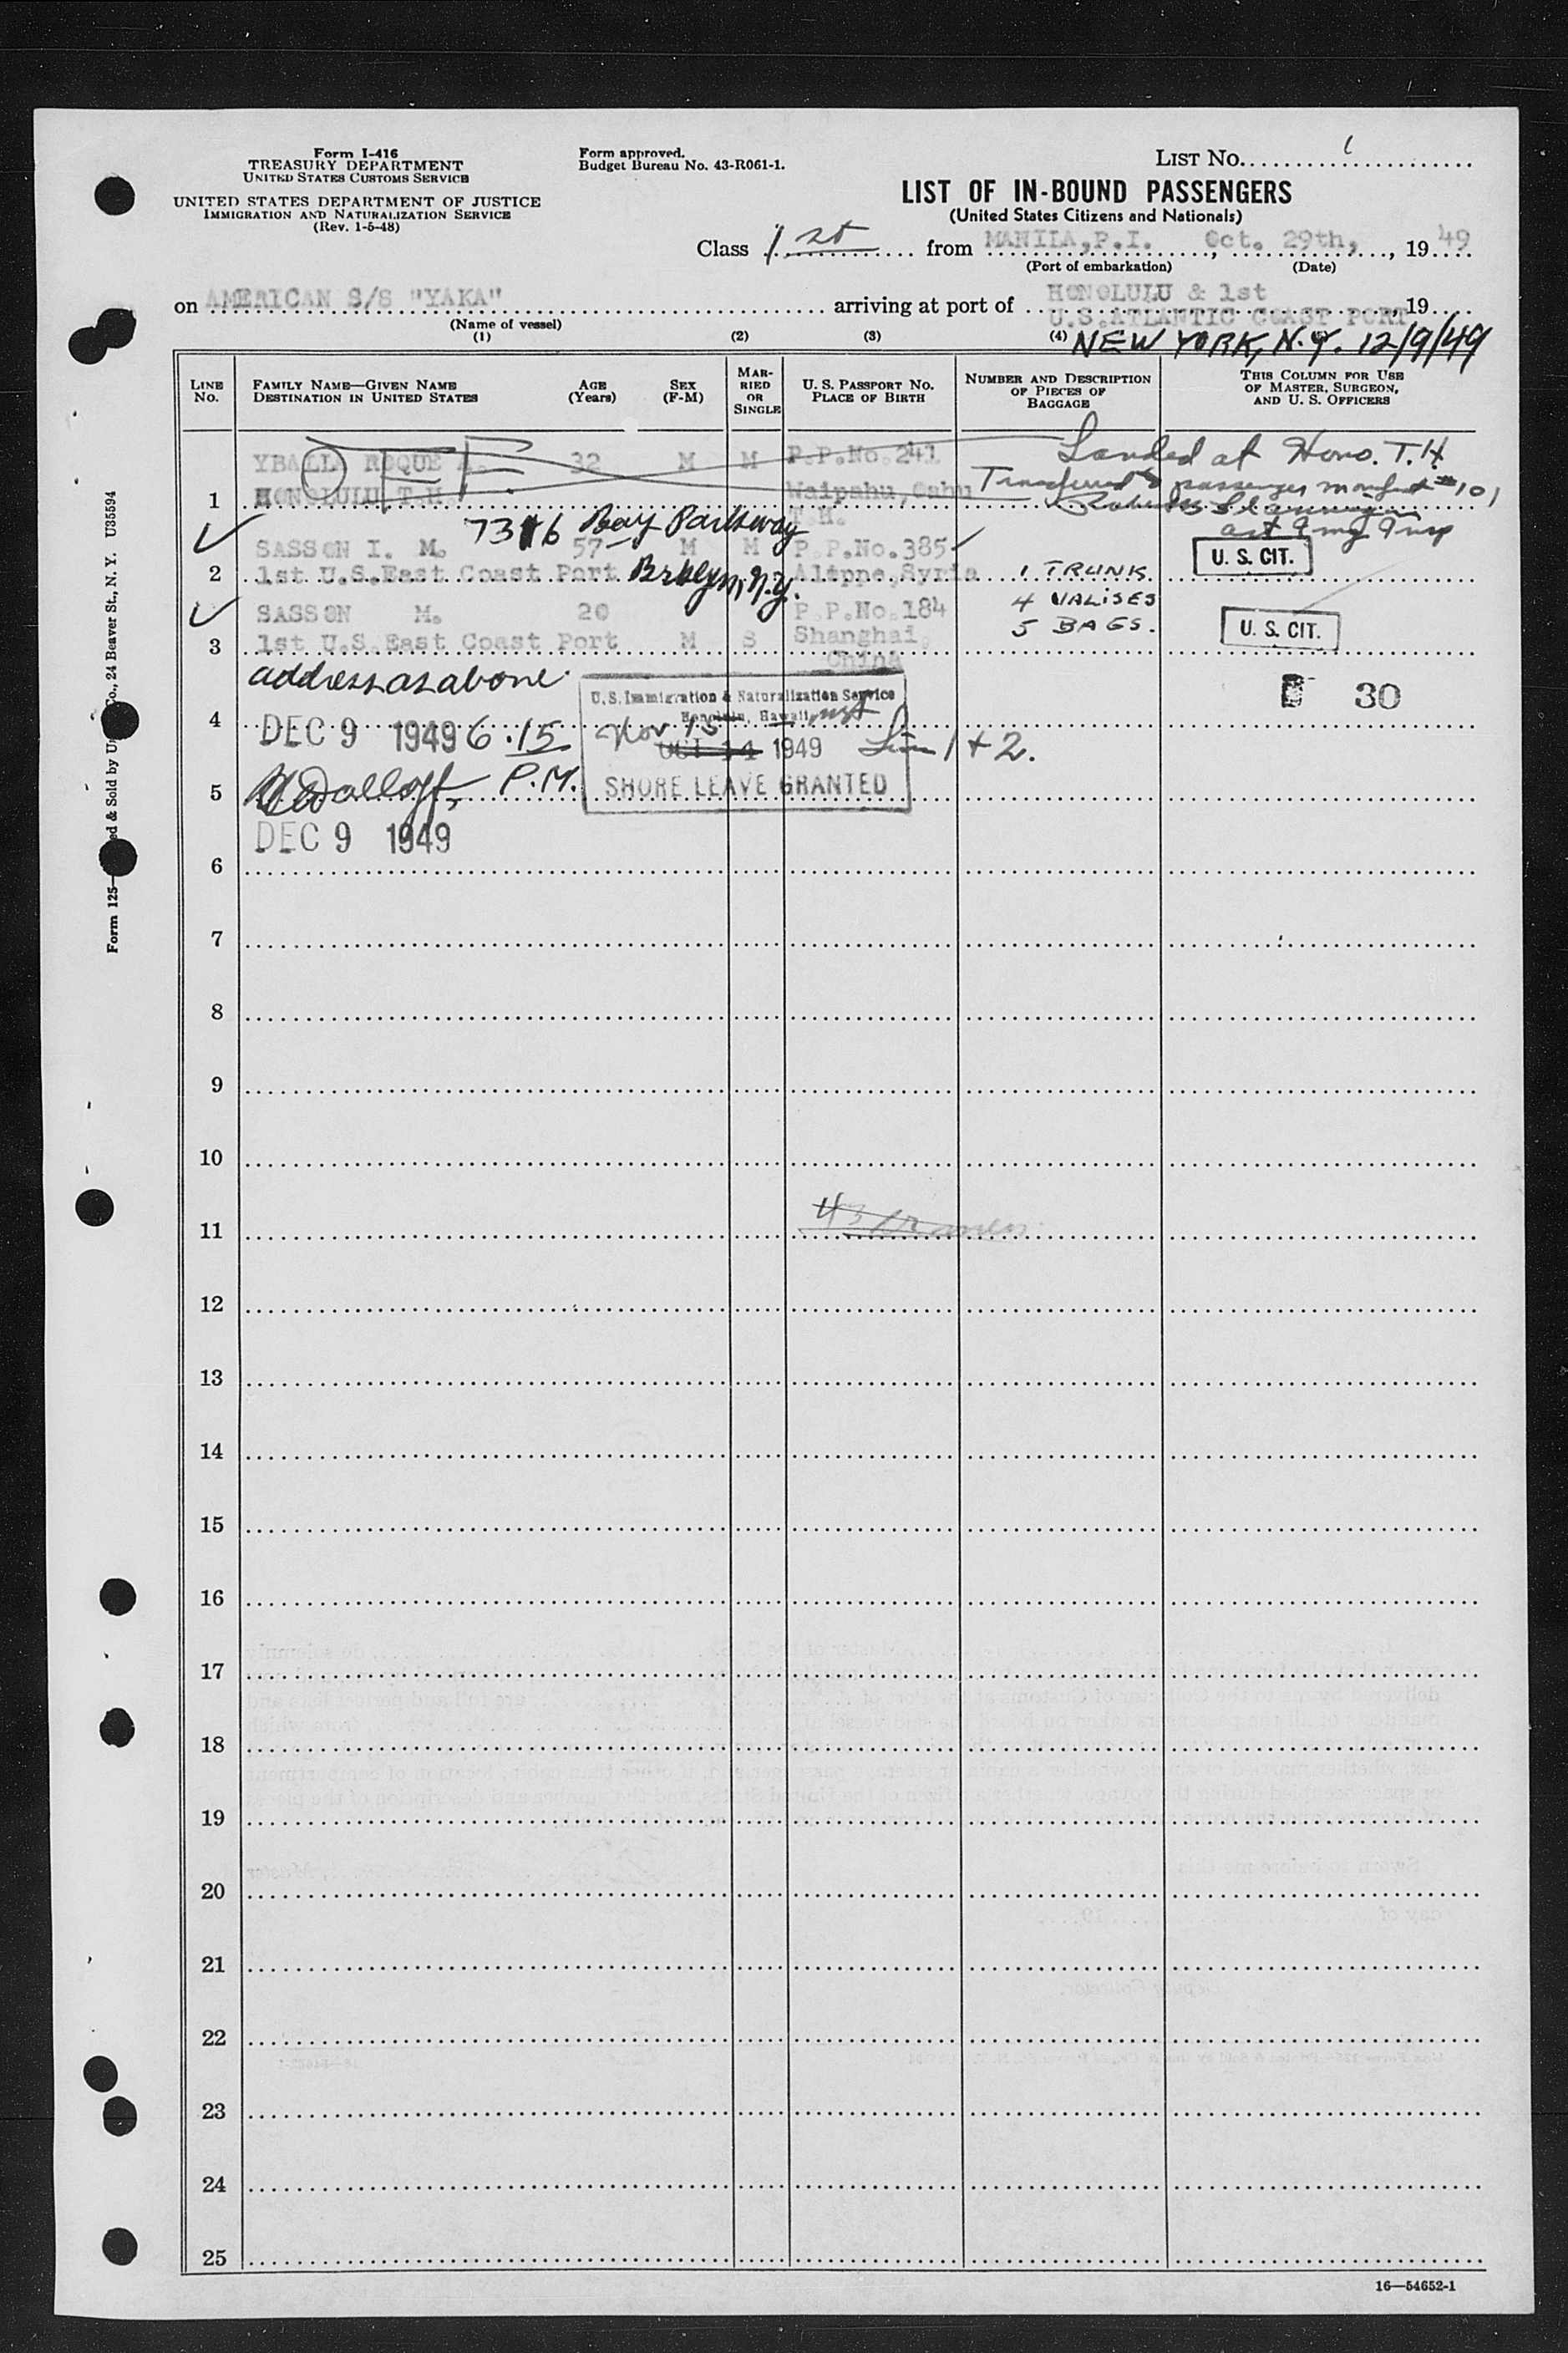 Form I-416
TREASURY DEPARTMENT
UNITED STATES CUSTOMS SERVICE
UNITED STATES DEPARTMENT OF JUSTICE
IMMIGRATION AND NATURALIZATION SERVICE
(Rev. 1-5-48)
Form approved.
Budget Bureau No. 43-R061-1.
LIST NO. 1
LIST OF IN-BOUND PASSENGERS
(United States Citizens and Nationals)
Class 1st from MANILA,P.I., Oct. 29th, 1949
(Port of embarkation) (Date)
on AMERICAN S/S "YAKA" arriving at port of HONOLULU & 1st U.S.ATLANTIC COAST PORT, 19
(Name of vessel)
NEW YORK, N.Y. 12/9/49
(1) (2) (3) (4)
LINE No.
FAMILY NAME—GIVEN NAME
DESTINATION IN UNITED STATES
AGE (Years)
SEX (F-M)
MARRIED OR SINGLE
U. S. PASSPORT NO.
PLACE OF BIRTH
NUMBER AND DESCRIPTION OF PIECES OF BAGGAGE
THIS COLUMN FOR USE OF MASTER, SURGEON, AND U. S. OFFICERS
YBALLA ROQUE A. 32 M M P.P.No.241
Landed at Hono. T.H.
1 HONOLULU T.H. Waipahu, Oahu T.H.
Transferred to passenger manifest #101
7316 Bay Parkway
SASSON I. M. 57 M M P.P.No.385
U. S. CIT.
2 1st U.S.East Coast Port Brklyn, N.Y. Altppe,Syria 1 TRUNK
SASSON M. 20 P.P.No.184 4 VALISES
3 1st U.S.East Coast Port M S Shanghai, China 5 BAGS.
U. S. CIT.
address as above
30
U.S. Immigration & Naturalization Service
Honolulu, Hawaii
4 DEC 9 1949 6.15 P.M. Nov 15 1949 Line 1 + 2.
5 SHORE LEAVE GRANTED
DEC 9 1949
6
7
8
9
10
11
12
13
14
15
16
17
18
19
20
21
22
23
24
25
16—54652-1
Form 125
ed & Sold by
Co., 24 Beaver St., N. Y. U35594